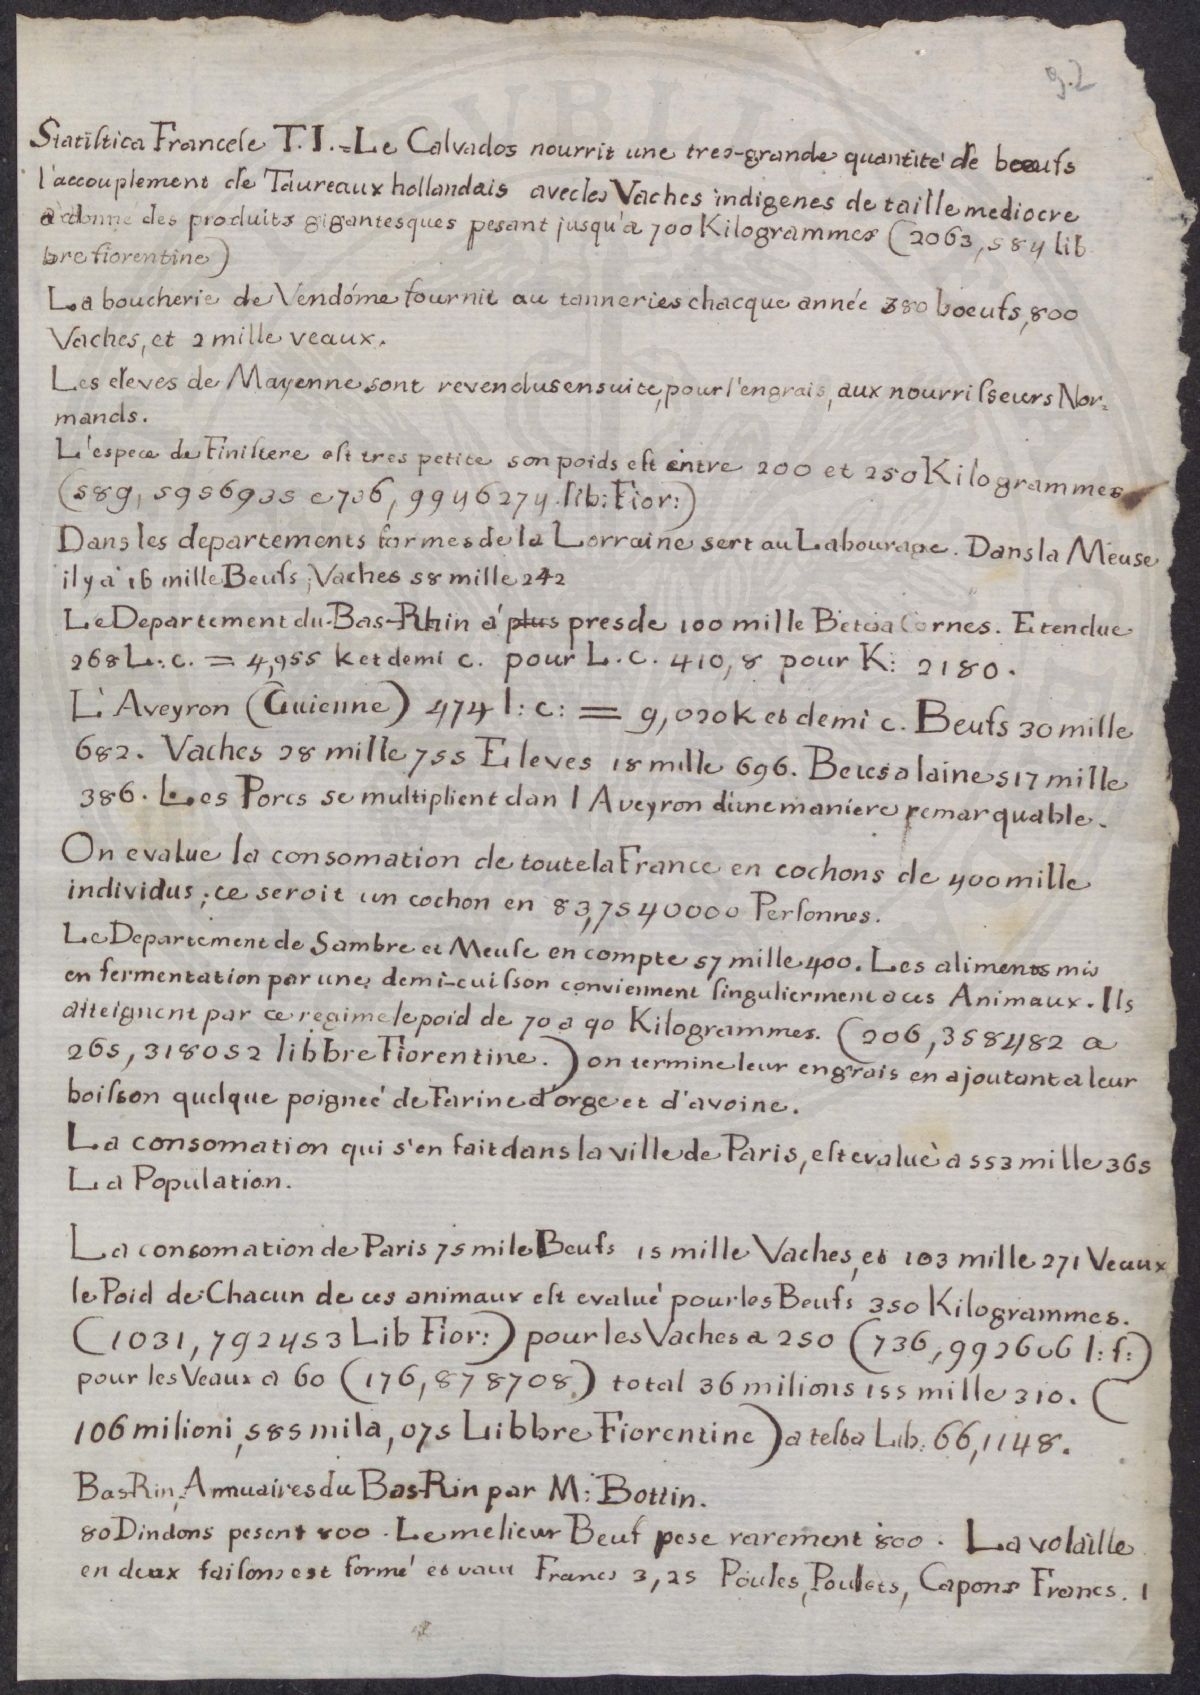 g.2
Statistica Francese T. I. = Le Calvados nourrit une tres-grande quantité de boeufs
l'accouplement de Taureaux hollandais avec les Vaches indigenes de taille mediocre
a donné des produits gigantesques pesant jusqu'a 700 Kilogrammes (2063,584 lib
bre fiorentine)
La boucherie de Vendóme fournit au tanneries chacque année 380 boeufs, 800
Vaches, et 2 mille veaux.
Les eleves de Mayenne sont revendus ensuite, pour l'engrais, aux nourrisseurs Nor=
mands.
L'espece de Finistere est tres petite son poids est entre 200 et 250 Kilogrammes
(589, 5956935 e 736, 9946274 lib: Fior:)
Dans les departements formes de la Lorraine sert au Labourage. Dans la Meuse
il y a 16 mille Beufs, Vaches 58 mille 242
Le Departement du-Bas-Rhin a plus pres de 100 mille Bètes a Cornes. Etendue
268 L: c. = 4,955 k et demi c. pour L. c. 410,8 pour K: 2180.
L'Aveyron (Guienne) 474 l: c: = 9,020 k et demi c. Beufs 30 mille
682. Vaches 28 mille 755 Eleves 18 mille 696. Betes a laine 517 mille
386. Les Porcs se multiplient dan l Aveyron d'une maniere remarquable.
On evalue la consomation de toute la France en cochons de 400 mille
individus; ce seroit un cochon en 83,7540000 Personnes.
Le Departement de Sambre et Meuse en compte 57 mille 400. Les aliments mis
en fermentation par une demi-cuisson conviennent singulierment a ces Animaux. Ils
atteignent par ce regime le poid de 70 a 90 Kilogrammes. (206,358482 a
265,318052 libbre Fiorentine.) on termine leur engrais en ajoutant a leur
boisson quelque poigneé de Farine d'orge et d'avoine.
La consomation qui s'en fait dans la ville de Paris, est evaluè a 553 mille 365
La Population.
La consomation de Paris 75 mile Beufs 15 mille Vaches, et 103 mille 271 Veaux
le Poid de Chacun de ces animaux est evalué pour les Beufs 350 Kilogrammes.
(1031,792453 Lib Fior:) pour les Vaches a 250 (736,992606 l: f:)
pour les Veaux a 60 (176,878708) total 36 milions 155 mille 310. (
106 milioni, 585 mila, 075 Libbre Fiorentine) a testa Lib: 66,1148.
Bas-Rin, Annuaires du Bas-Rin par M: Bottin.
80 Dindons pesent 800. Le melieur Beuf pese rarement 800. La volaille
en deux saisons est formé et vaut Francs 3,25 Poules, Poulets, Capons Francs. 1